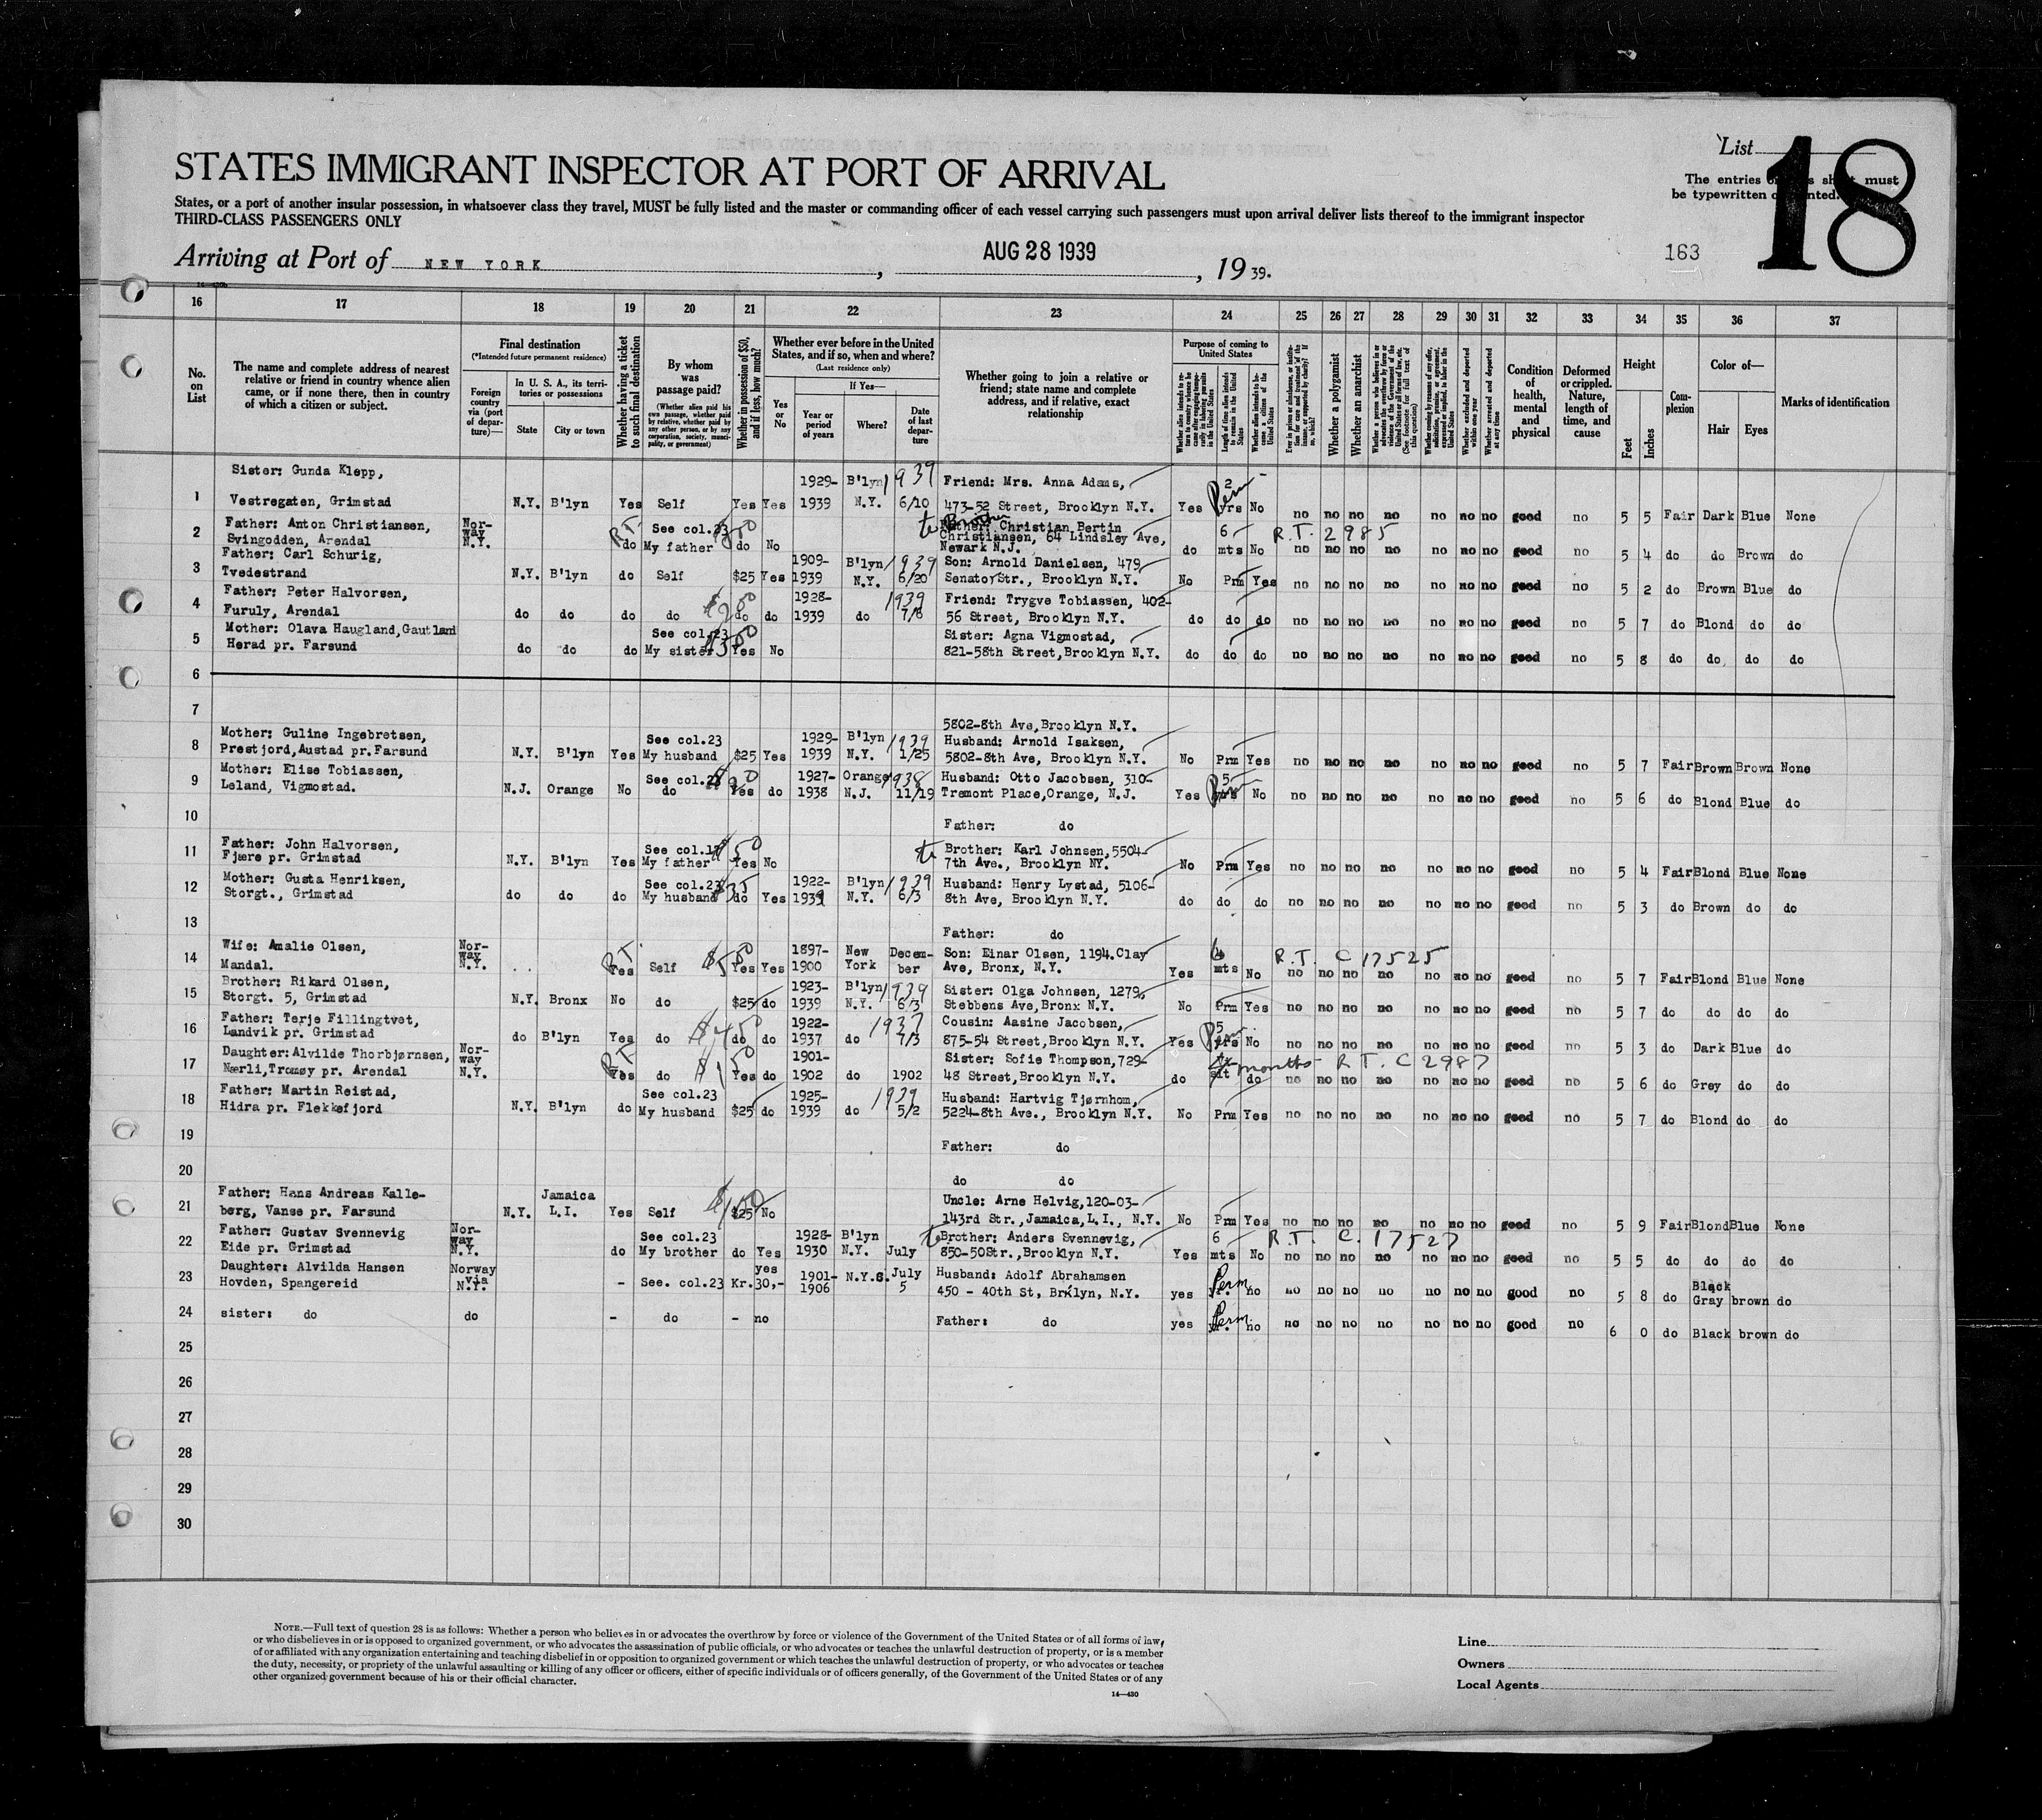 List 18
STATES IMMIGRANT INSPECTOR AT PORT OF ARRIVAL
The entries on this sheet must
be typewritten or printed.
States, or a port of another insular possession, in whatsoever class they travel, MUST be fully listed and the master or commanding officer of each vessel carrying such passengers must upon arrival deliver lists thereof to the immigrant inspector
THIRD-CLASS PASSENGERS ONLY
Arriving at Port of NEW YORK, AUG 28 1939, 19 39.
163
16 17 18 19 20 21 22 23 24 25 26 27 28 29 30 31 32 33 34 35 36 37
No. on List
The name and complete address of nearest relative or friend in country whence alien came, or if none there, then in country of which a citizen or subject.
Final destination
(*Intended future permanent residence)
Foreign country via (port of departure)—
In U. S. A., its territories or possessions
State
City or town
Whether having a ticket to such final destination
By whom was passage paid?
(Whether alien paid his own passage, whether paid by relative, whether paid by any other person, or by any corporation, society, municipality, or government)
Whether in possession of $50, and if less, how much?
Whether ever before in the United States, and if so, when and where?
(Last residence only)
Yes or No
If Yes—
Year or period of years
Where?
Date of last departure
Whether going to join a relative or friend; state name and complete address, and if relative, exact relationship
Purpose of coming to United States
Whether alien intends to return to country whence he came after engaging temporarily in laboring pursuits in the United States
Length of time alien intends to remain in the United States
Whether alien intends to become a citizen of the United States
Ever in prison or almshouse, or institution for care and treatment of the insane, or supported by charity? If so, which?
Whether a polygamist
Whether an anarchist
Whether a person who believes in or advocates the overthrow by force or violence of the Government of the United States or all forms of law, etc. (See footnote for full text of this question)
Whether coming by reason of any offer, solicitation, promise, or agreement, expressed or implied, to labor in the United States
Whether excluded and deported within one year
Whether arrested and deported at any time
Condition of health, mental and physical
Deformed or crippled. Nature, length of time, and cause
Height
Feet
Inches
Complexion
Color of—
Hair
Eyes
Marks of identification
1 Sister: Gunda Klepp, 1929- B'lyn 1939 Friend: Mrs. Anna Adams, 2 Perm
Vestregaten, Grimstad N.Y. B'lyn Yes Self Yes Yes 1939 N.Y. 6/10 473-52 Street, Brooklyn N.Y. Yes yrs No no no no no no no no good no 5 5 Fair Dark Blue None
2 Father: Anton Christiansen, Norway N.Y. R.T. See col.23 $50 to Brother Father: Christian Bertin 6 R.T. 2985
Svingodden, Arendal do My father do No Christiansen, 64 Lindsley Ave, Newark N.J. do mts No no no no no no no no good no 5 4 do do Brown do
3 Father: Carl Schurig, 1909- B'lyn 1939 Son: Arnold Danielsen, 479
Tvedestrand N.Y. B'lyn do Self $25 Yes 1939 N.Y. 6/20 Senator Str., Brooklyn N.Y. No Prm Yes no no no no no no no good no 5 2 do Brown Blue do
4 Father: Peter Halvorsen, 1928- 1939 Friend: Trygve Tobiassen, 402-
Furuly, Arendal do do do do do do 1939 do 7/8 56 Street, Brooklyn N.Y. do do do no no no no no no no good no 5 7 do Blond do do
5 Mother: Olava Haugland, Gautland See col.23 Sister: Agna Vigmostad,
Herad pr. Farsund do do do My sister Yes No 821-58th Street, Brooklyn N.Y. do do do no no no no no no no good no 5 8 do do do do
6
7 5802-8th Ave, Brooklyn N.Y.
8 Mother: Guline Ingebretsen, See col.23 1929- B'lyn 1939 Husband: Arnold Isaksen,
Prestjord, Austad pr. Farsund N.Y. B'lyn Yes My husband $25 Yes 1939 N.Y. 1/25 5802-8th Ave, Brooklyn N.Y. No Prm Yes no no no no no no no good no 5 7 Fair Brown Brown None
9 Mother: Elise Tobiassen, 1927- Orange 1938 Husband: Otto Jacobsen, 310- 5
Leland, Vigmostad. N.J. Orange No do Yes do 1938 N.J. 11/19 Tremont Place, Orange, N.J. Yes yrs No no no no no no no no good no 5 6 do Blond Blue do
10 Father: do
11 Father: John Halvorsen, See col.17 $50 to Brother: Karl Johnsen, 5504-
Fjære pr. Grimstad N.Y. B'lyn Yes My father Yes No 7th Ave., Brooklyn NY. No Prm Yes no no no no no no no good no 5 4 Fair Blond Blue None
12 Mother: Gusta Henriksen, See col.23 $35 1922- B'lyn 1939 Husband: Henry Lystad, 5106-
Storgt., Grimstad do do do My husband do Yes 1939 N.Y. 6/3 8th Ave, Brooklyn N.Y. do do do no no no no no no no good no 5 3 do Brown do do
13 Father: do
14 Wife: Amalie Olsen, Norway N.Y. R.T. $50 1897- New Decem- Son: Einar Olsen, 1194 Clay 6 R.T. C 17525
Mandal. Yes Self Yes Yes 1900 York ber Ave, Bronx, N.Y. Yes mts No no no no no no no no good no 5 7 Fair Blond Blue None
15 Brother: Rikard Olsen, 1923- B'lyn 1939 Sister: Olga Johnsen, 1279,
Storgt. 5, Grimstad N.Y. Bronx No do $25 do 1939 N.Y. 6/3 Stebbens Ave, Bronx N.Y. No Prm Yes no no no no no no no good no 5 7 do do do do
16 Father: Terje Fillingtvet, 1922- 1937 Cousin: Aasine Jacobsen, 5
Landvik pr. Grimstad do B'lyn Yes do do do 1937 do 7/3 875-54 Street, Brooklyn N.Y. Yes yrs No no no no no no no no good no 5 3 do Dark Blue do
17 Daughter: Alvilde Thorbjørnsen, Norway N.Y. R.T. 1901- Sister: Sofie Thompson, 729- months R.T. C 2987
Nærli, Tromøy pr. Arendal Yes do Yes do 1902 do 1902 48 Street, Brooklyn N.Y. do do no no no no no no no good no 5 6 do Grey do do
18 Father: Martin Reistad, See col.23 1925- 1939 Husband: Hartvig Tjørnhom,
Hidra pr. Flekkefjord N.Y. B'lyn do My husband $25 do 1939 do 5/2 5224-8th Ave., Brooklyn N.Y. No Prm Yes no no no no no no no good no 5 7 do Blond do do
19 Father: do
20 do do
21 Father: Hans Andreas Kalle- Jamaica Uncle: Arne Helvig, 120-03-
berg, Vanse pr. Farsund N.Y. L.I. Yes Self $25 No 143rd Str., Jamaica, L.I., N.Y. No Prm Yes no no no no no no no good no 5 9 Fair Blond Blue None
22 Father: Gustav Svennevig Norway N.Y. See col.23 1928- B'lyn to Brother: Anders Svennevig, 6 R.T. C. 17527
Eide pr. Grimstad do My brother do Yes 1930 N.Y. July 850-50Str., Brooklyn N.Y. Yes mts No no no no no no no no good no 5 5 do do do do
23 Daughter: Alvilda Hansen Norway via N.Y. yes 1901- N.Y.C. July Husband: Adolf Abrahamsen Perm Black
Hovden, Spangereid - See. col.23 Kr.30,- 1906 5 450 - 40th St, Brklyn, N.Y. yes no no no no no no no no good no 5 8 do Gray brown do
24 sister: do do - do - no Father: do yes Perm no no no no no no no no good no 6 0 do Black brown do
25
26
27
28
29
30
NOTE.—Full text of question 28 is as follows: Whether a person who believes in or advocates the overthrow by force or violence of the Government of the United States or of all forms of law,
or who disbelieves in or is opposed to organized government, or who advocates the assassination of public officials, or who advocates or teaches the unlawful destruction of property, or is a member
of or affiliated with any organization entertaining and teaching disbelief in or opposition to organized government or which teaches the unlawful destruction of property, or who advocates or teaches
the duty, necessity, or propriety of the unlawful assaulting or killing of any officer or officers, either of specific individuals or of officers generally, of the Government of the United States or of any
other organized government because of his or their official character.
14—430
Line
Owners
Local Agents